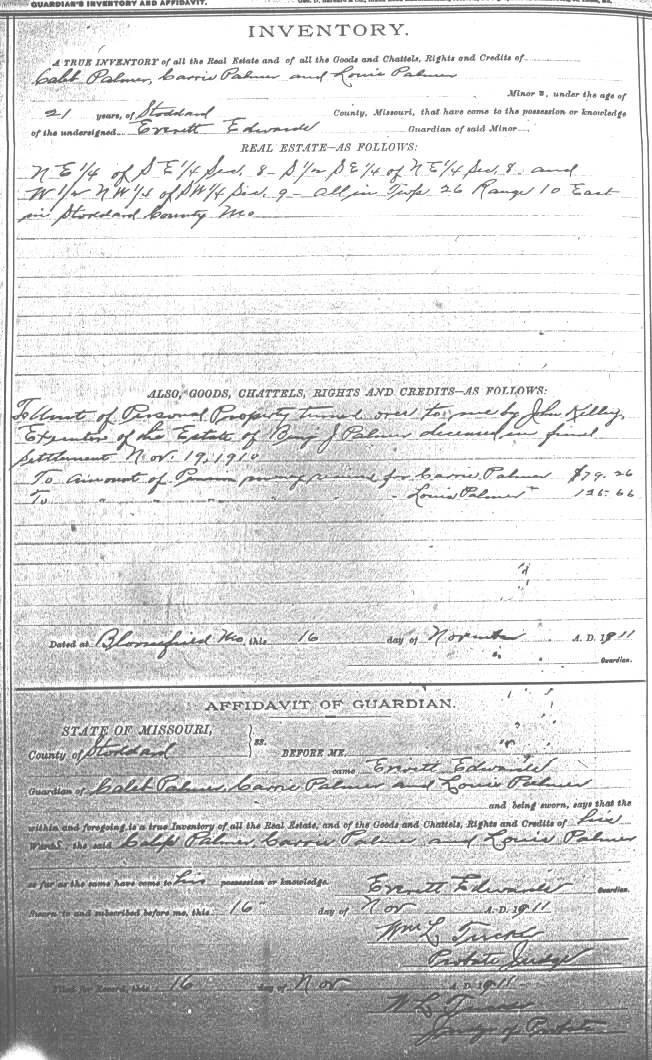 GUARDIAN'S INVENTORY AND AFFIDAVIT.
INVENTORY.
A TRUE INVENTORY of all the Real Estate and of all the Goods and Chattels, Rights and Credits of
Caleb Palmer, Carrie Palmer and Louis Palmer
Minor s, under the age of
21 years, of Stoddard County, Missouri, that have come to the possession or knowledge
of the undersigned Everett Edwards Guardian of said Minor
REAL ESTATE—AS FOLLOWS:
N E 1/4 of S E 1/4 Sec. 8 - S 1/2 S E 1/4 of N E 1/4 Sec. 8 and
W 1/2 N W 1/4 of S W 1/4 Sec. 9 - all in Twp 26 Range 10 East
in Stoddard County Mo
ALSO, GOODS, CHATTELS, RIGHTS AND CREDITS—AS FOLLOWS:
To Amt of Personal Property turned over to me by John Kelley,
Executor of the Estate of Benj J Palmer deceased in final
settlement Nov. 19, 1910
To amount of Pension money received for Carrie Palmer $79.26
To " " " " " Louis Palmer 126.66
Dated at Bloomfield Mo, this 16 day of November A. D. 1911
Guardian.
AFFIDAVIT OF GUARDIAN.
STATE OF MISSOURI,
County of Stoddard ss. BEFORE ME
came Everett Edwards
Guardian of Caleb Palmer, Carrie Palmer and Louis Palmer
and being sworn, says that the
within and foregoing is a true Inventory of all the Real Estate, and of the Goods and Chattels, Rights and Credits of his
Wards the said Caleb Palmer, Carrie Palmer and Louis Palmer
as far as the same have come to his possession or knowledge.
Everett Edwards Guardian.
Sworn to and subscribed before me, this 16 day of Nov A. D. 1911
Wm L Tucker
Probate Judge
Filed for Record, this 16 day of Nov A. D. 1911
W L Tucker
Judge of Probate